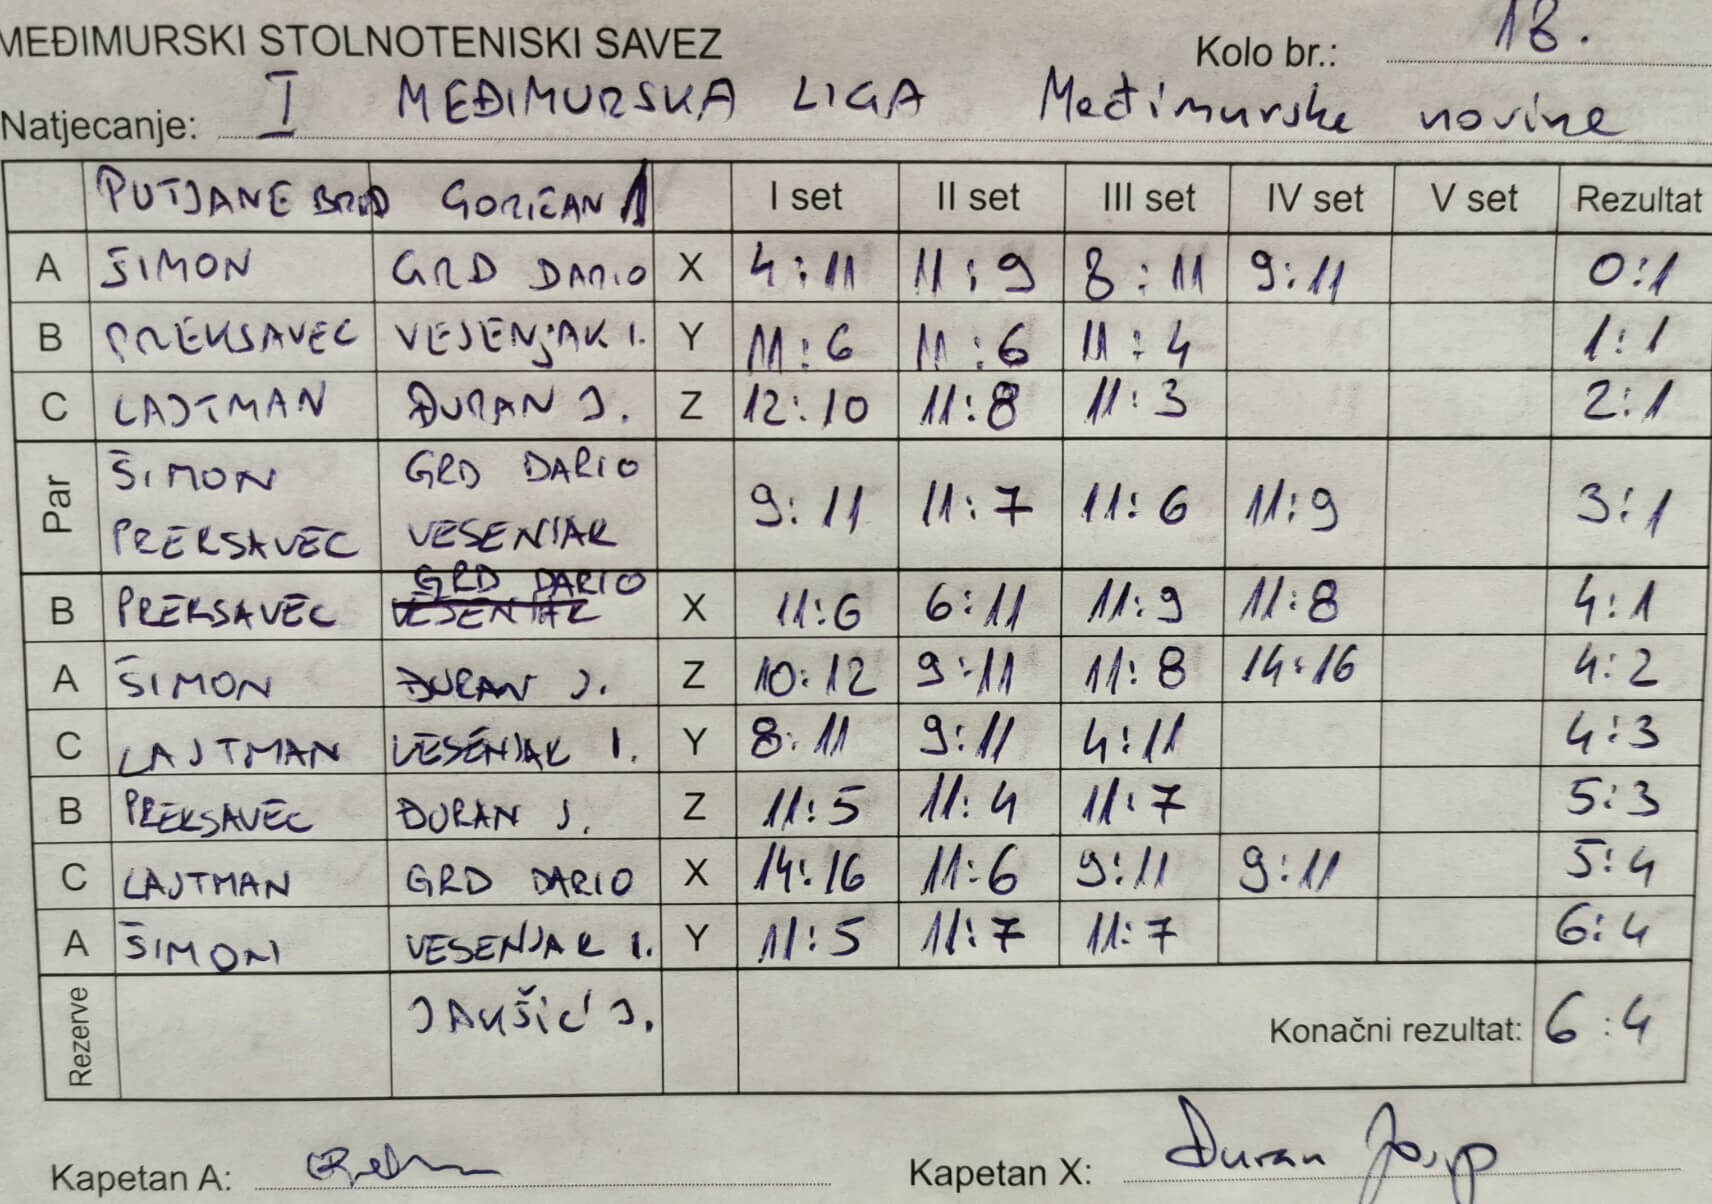 MEĐIMURSKI STOLNOTENISKI SAVEZ
Kolo br.: 18.
Natjecanje: I MEĐIMURSKA LIGA Međimurske novine
PUTJANE BRD GORIČAN 1 I set II set III set IV set V set Rezultat
A ŠIMON GRD DARIO X 4:11 11:9 8:11 9:11 0:1
B PREKSAVEC VESENJAK I. Y 11:6 11:6 11:4 1:1
C LAJTMAN ĐURAN J. Z 12:10 11:8 11:3 2:1
ŠIMON GRD DARIO
Par 9:11 11:7 11:6 11:9 3:1
PREKSAVEC VESENJAK
GRD DARIO
B PREKSAVEC VESENJAK X 11:6 6:11 11:9 11:8 4:1
A ŠIMON ĐURAN J. Z 10:12 9:11 11:8 14:16 4:2
C LAJTMAN VESENJAK I. Y 8:11 9:11 4:11 4:3
B PREKSAVEC ĐURAN J. Z 11:5 11:4 11:7 5:3
C LAJTMAN GRD DARIO X 14:16 11:6 9:11 9:11 5:4
A ŠIMON VESENJAK I. Y 11:5 11:7 11:7 6:4
Rezerve JAKŠIĆ J. Konačni rezultat: 6:4
Kapetan A: Kapetan X: Đuran Josip